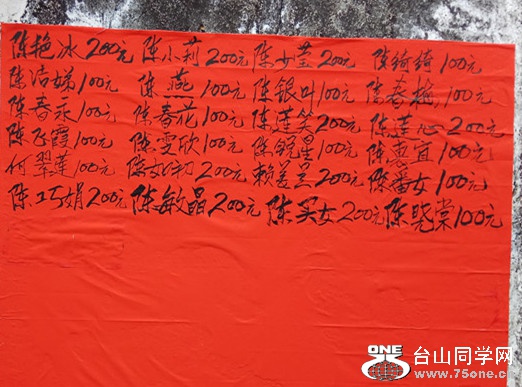 陈艳冰200元 陈小莉200元 陈少莹200元 陈绮琦100元
陈诗娣100元 陈燕100元 陈银叶100元 陈春梅100元
陈春乐100元 陈春花100元 陈莲笑200元 陈莲心200元
陈飞霞100元 陈雯欣100元 陈锦星100元 陈惠宜100元
何翠莲100元 陈 100元 赖美 200元 陈 女100元
陈巧娟200元 陈敏晶200元 陈买女200元 陈晓棠100元
ONE
台山同学网
www.75one.c